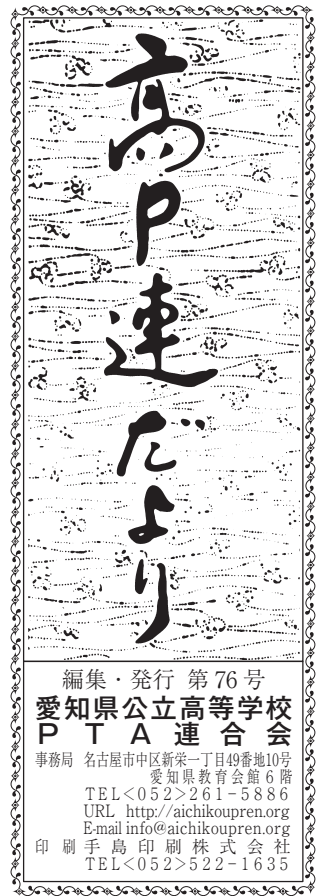 高P連だより
編集・発行 第76号
愛知県公立高等学校
PTA連合会
事務局 名古屋市中区新栄一丁目49番地10号
愛知県教育会館6階
TEL<052>261-5886
URL http://aichikoupren.org
E-mail info@aichikoupren.org
印刷 手島印刷株式会社
TEL<052>522-1635